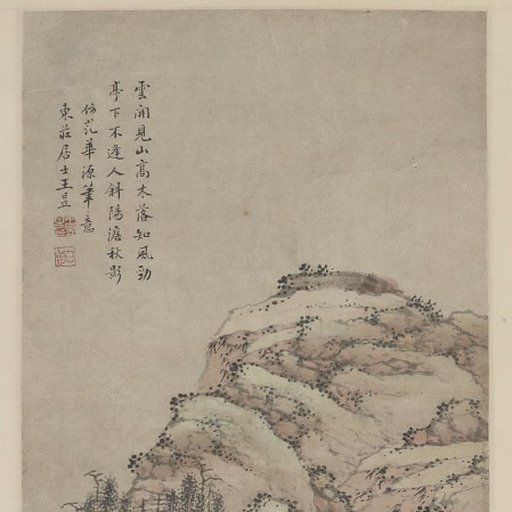 雲開見山高木落知風勁
亭下不逢人斜陽澹秋影
仿范華源筆意
東莊居士王昱